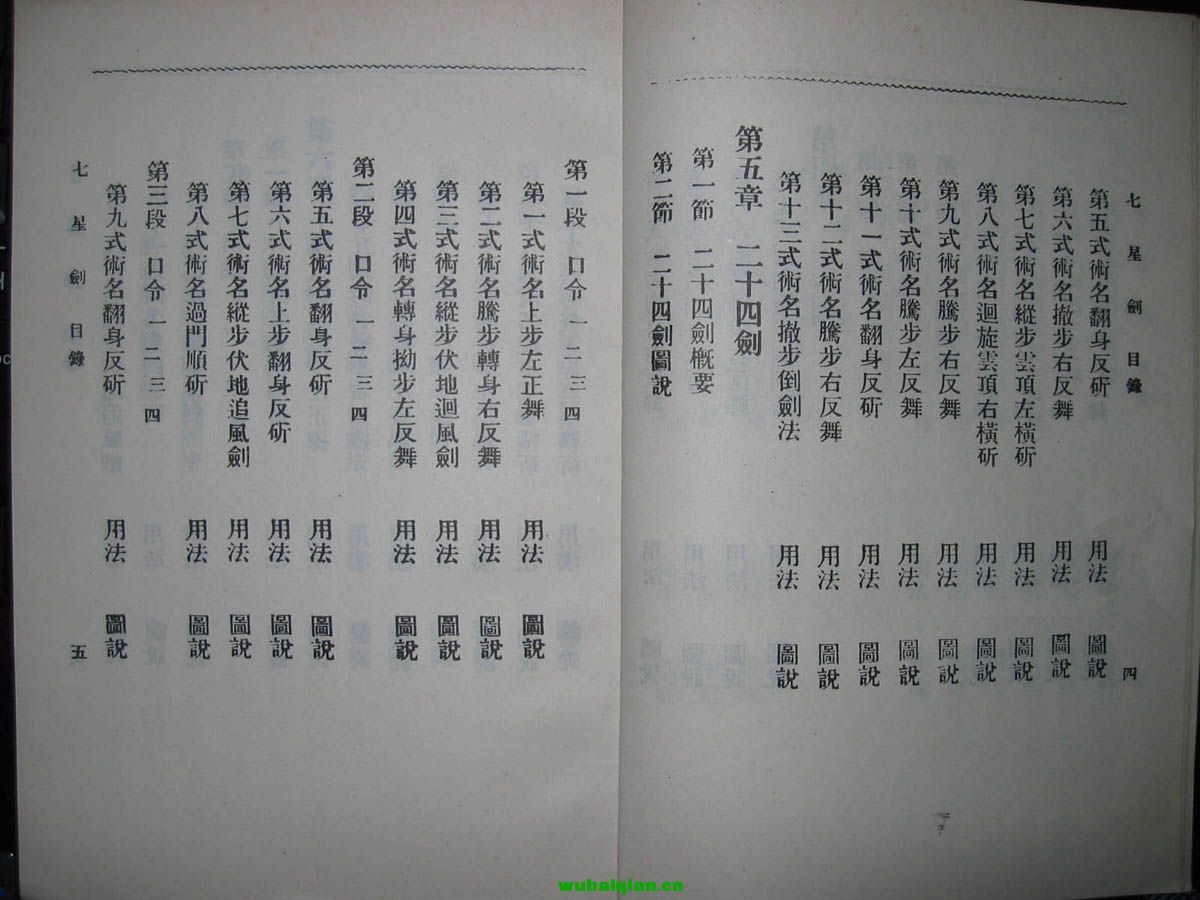 七星劍目錄
四
第五式術名翻身反斫 用法 圖說
第六式術名撤步右反舞 用法 圖說
第七式術名縱步雲頂左橫斫 用法 圖說
第八式術名迴旋雲頂右橫斫 用法 圖說
第九式術名騰步右反舞 用法 圖說
第十式術名騰步左反舞 用法 圖說
第十一式術名翻身反斫 用法 圖說
第十二式術名騰步右反舞 用法 圖說
第十三式術名撤步倒劍法 用法 圖說
第五章 二十四劍
第一節 二十四劍概要
第二節 二十四劍圖說
第一段 口令 一 二 三 四
第一式術名上步左正舞 用法 圖說
第二式術名騰步轉身右反舞 用法 圖說
第三式術名縱步伏地迴風劍 用法 圖說
第四式術名轉身拗步左反舞 用法 圖說
第二段 口令 一 二 三 四
第五式術名翻身反斫 用法 圖說
第六式術名上步翻身反斫 用法 圖說
第七式術名縱步伏地追風劍 用法 圖說
第八式術名過門順斫 用法 圖說
第三段 口令 一 二 三 四
第九式術名翻身反斫 用法 圖說
七星劍目錄
五
wubaiqian.cn